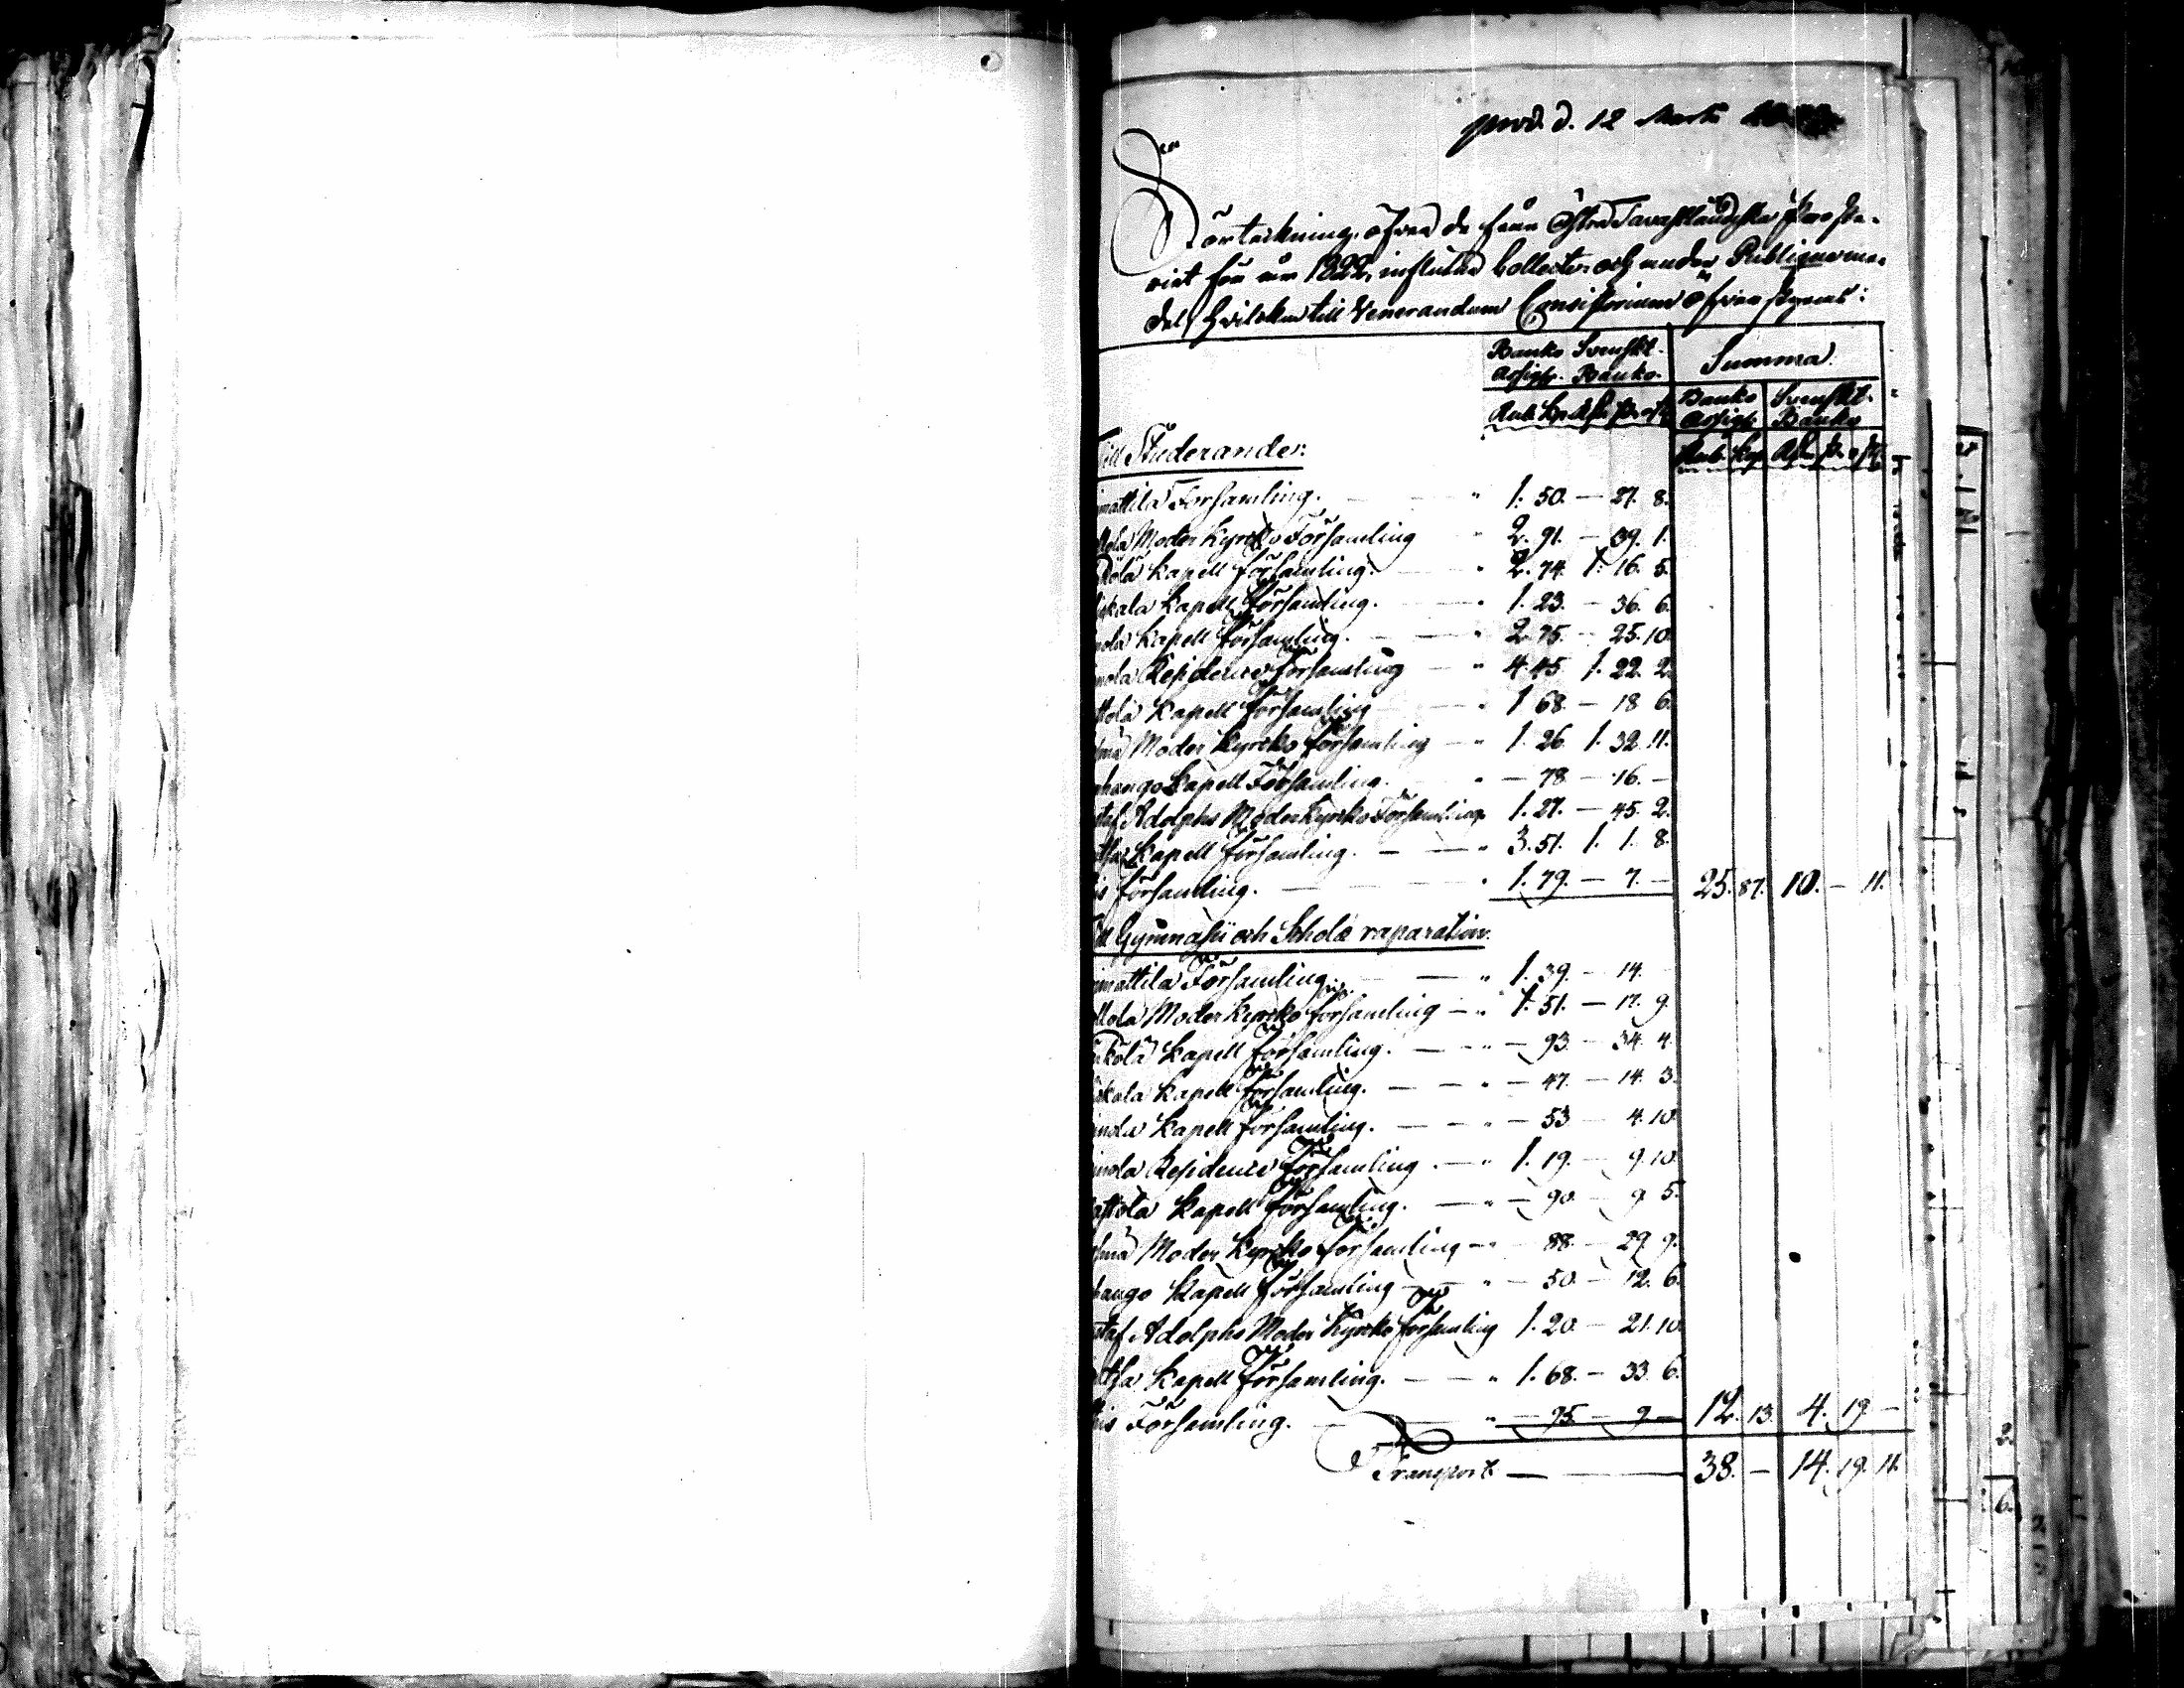 d. 12 Martii
Förteckning öfver de från Östra Tavastländska Proste-
riet för år 1822, influtne Collecter och andre Publique me-
del, hvilka till Venerandum Consistorium öfver
Banko Svenskt
Assign. Banko. Summa.
Rub. Kop. Banko Svenskt
Assign. Banko
Till Studerander: Rub. Kop.
mattila Församling. — " 1. 50. — 27. 8.
llola Moder Kyrko Församling " 2. 91. — 39. 1.
kola Kapell församling. — " 2. 74. 1. 16. 5.
kala Kapell församling. — " 1. 23. — 36. 6.
nola Kapell församling. — " 2. 75. — 25. 10.
nola Residence Församling — " 4. 45. 1. 22. 2.
tola Kapell Församling " 1. 68. — 18. 6.
Moder Kyrko församling — " 1. 26. 1. 32. 11.
hango Kapell Församling. " — 78. — 16. —
taf Adolphs Moder Kyrko Församling 1. 27. — 45. 2.
Kapell församling. — " 3. 51. 1. 1. 8.
is församling. — " 1. 79. — 7. — 25. 87. 10. — 11.
Till Gymnasii och Schole reparation.
mattila Församling. — " 1. 39. — 14. —
llola Moder Kyrko församling — " 1. 51. — 17. 9.
kola Kapell församling. — " — 93. — 34. 4.
kala Kapell församling. — " — 47. — 14. 3.
nola Kapell församling. — " — 53. — 4. 10.
nola Residence Församling. — " 1. 19. — 9. 10.
stola Kapell församling. — " — 90. — 9. 5.
Moder Kyrko församling — " 88. — 29. 9.
hango Kapell församling — " — 50. — 12. 6.
staf Adolphs Moder Kyrko församling 1. 20. — 21. 10.
Kapell församling. — " 1. 68. — 33. 6.
is Församling. — " — 95. — 9. — 12. 13. 4. 19. —
Transport — 38. — 14. 19. 11.